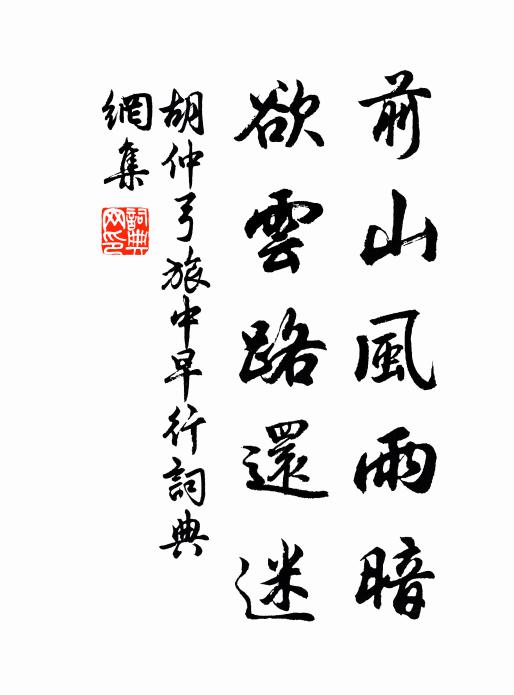 前山風雨暗
欲雲路還迷
胡仲弓旅中早行詞典
網集
詞典网印